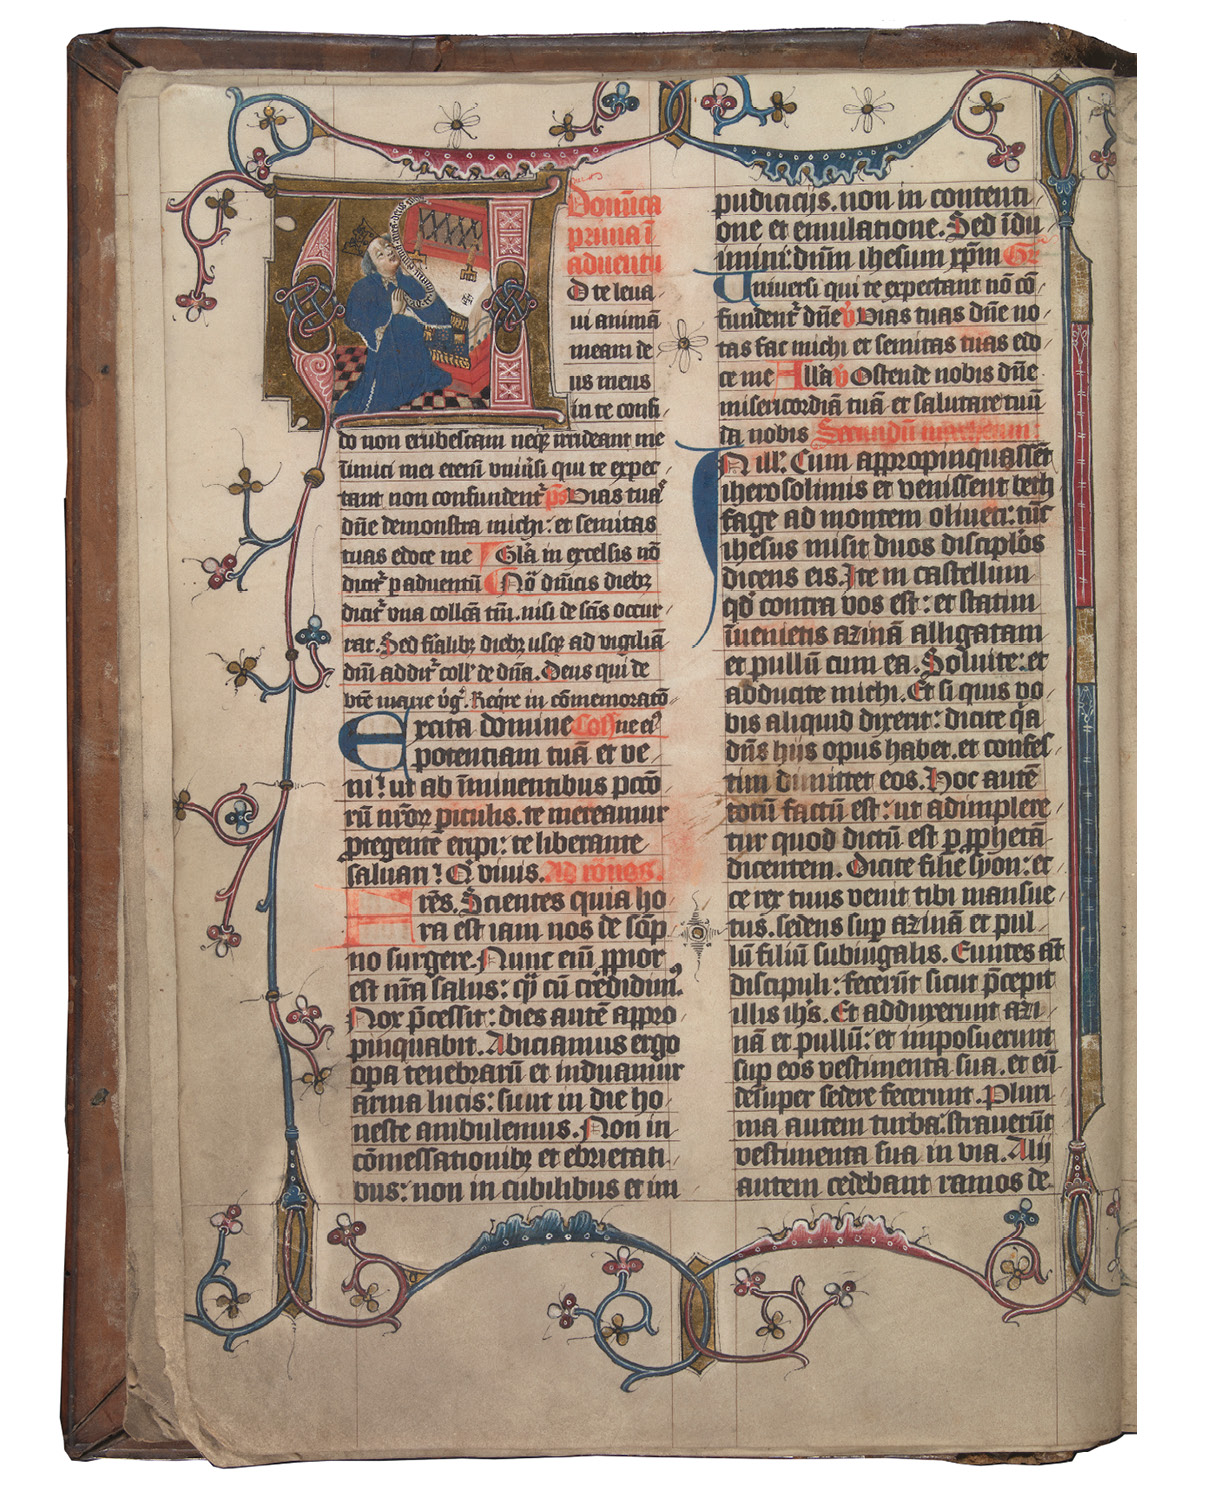 Domica
prima i
aduentu
D te leua
ui animā
meam de
us meus
in te confi
do non erubescam neqꝫ irrideant me
inimici mei etem vniūsi qui te expec
tant non confundent᷑ ps Vias tuaˢ
dn̄e demonstra michi: et semitas
tuas edoce me Glā in excelsis nō
dicit᷑ p aduentū Nō dn̄icis diebꝫ
dicit᷑ vna collcā tm̄. nisi de scīs occur
rat. Sed fialibꝫ diebꝫ usqꝫ ad vigiliā
dn̄i addit᷑ coll' de dn̄a. Deus qui de
bte marie v̄gˢ. Reqre in cōmemoratō
Excita domine Coll ne eˢ
potentiam tuā et ve
ni: ut ab īminentibus pccō
rū nr̄or piculis. te mereamur
ꝓtegente eripi: te liberante
saluari: Q viuis. Ad rōnos.
Fres. Scientes quia ho
ra est iam nos de sōp
no surgere. Nunc eim̄ ꝓpior
est nr̄a salus: qȝ cū credidimꝰ.
Nox p̄cessit: dies autē appro
pinquabit. Abiciamus ergo
opa tenebrarū et induamur
arma lucis: sicut in die ho
neste ambulemus. Non in
cōmessationibꝫ et ebrietati
bus: non in cubilibus et im
pudicicijs. non in contenti
one et emulatione. Sed īdu
imini: dn̄m ihesum xpm̄ Gr
Vniuersi qui te expectant nō cō
fundent᷑ dn̄e v Vias tuas dn̄e no
tas fac michi et semitas tuas edo
ce me Allā v Ostende nobis dn̄e
misericordiā tuā et salutare tuū
da nobis Secundū matheum
In ill': Cum appropinquasset
iherosolimis et venissent beth
fage ad montem oliueti: tūc
ihesus misit duos disciplōs
dicens eis. Ite in castellum
qd̄ contra vos est: et statim
inuenietis azinā alligatam
et pullū cum ea. Soluite: et
adducite michi. Et si quis vo
bis aliquid dixerit: dicite qā
dn̄s hijs opus habet. et confes
tim dimittet eos. Hoc autē
totū factū est: ut adimplere
tur quod dictū est p ꝓphetā
dicentem. Dicite filie syon: et
ce rex tuus venit tibi mansue
tus. sedens sup azinā et pul
lū filiū subiugalis. Euntes aūt
discipuli: fecerūt sicut p̄cepit
illis ihs̄. Et adduxerunt azi
nā et pullū: et imposuerunt
sup eos vestimenta sua. et eū
desuper sedere fecerunt. Pluri
ma autem turba: strauerūt
vestimenta sua in via. Alij
autem cedebant ramos de